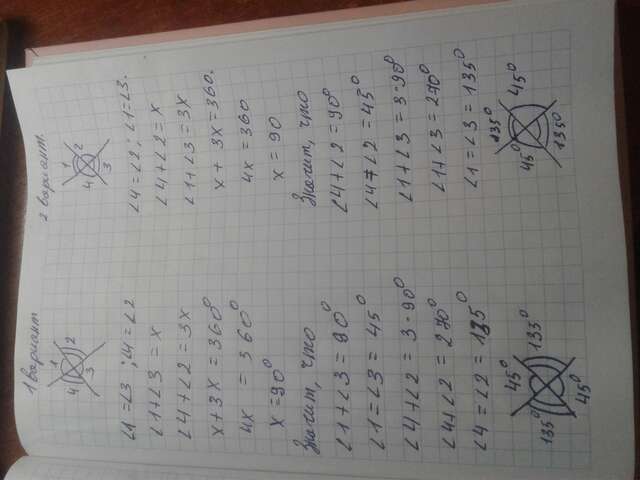 1 вариант
1
4 2
3
∠1 = ∠3 ; ∠4 = ∠2
∠1 + ∠3 = x
∠4 + ∠2 = 3x
x + 3x = 360°
4x = 360°
x = 90°
Значит, что
∠1 + ∠3 = 90°
∠1 = ∠3 = 45°
∠4 + ∠2 = 3 · 90°
∠4 + ∠2 = 270°
∠4 = ∠2 = 135°
45°
135° 133°
45°
2 вариант.
1
4 2
3
∠4 = ∠2 ; ∠1 = ∠3.
∠4 + ∠2 = x
∠1 + ∠3 = 3x
x + 3x = 360.
4x = 360
x = 90
Значит, что
∠4 + ∠2 = 90°
∠4 = ∠2 = 45°
∠1 + ∠3 = 3 · 90°
∠1 + ∠3 = 270°
∠1 = ∠3 = 135°
135°
45° 45°
135°